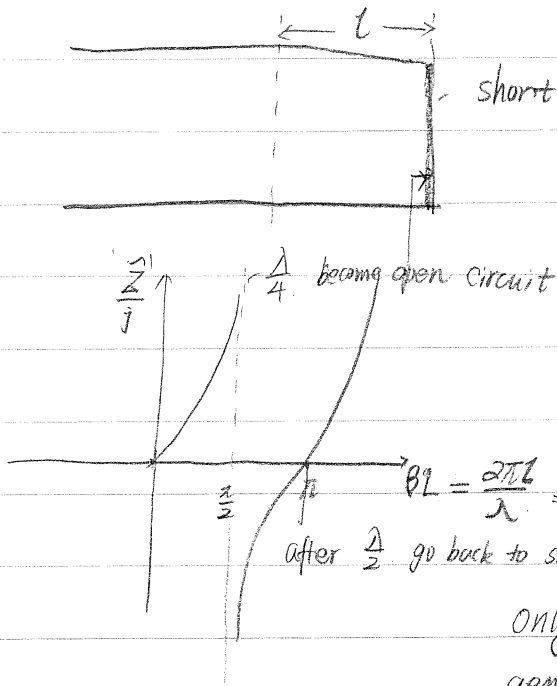 l
short
Ẑ/j
λ/4 become open circuit
π/2
π
βl = 2πl/λ
after λ/2 go back to s
onl